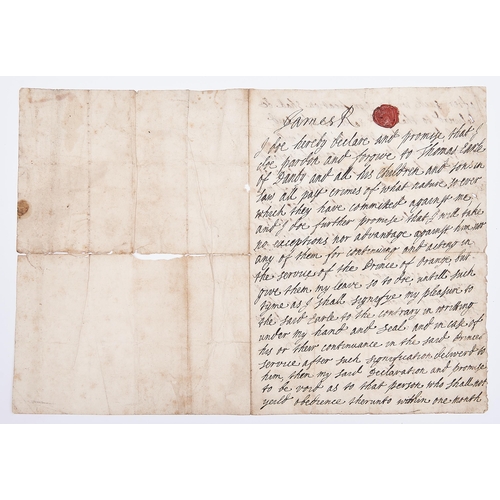 James R
I doe hereby declare and promise that I
doe pardon and forgive to Thomas Earle
of Danby and all his Children and son in
Law all past crimes of what nature so ever
which they have committed against me
and I doe further promise that I will take
no exceptions nor advantage against him nor
any of them for continuing and acting in
the service of the Prince of Orange but
give them my leave so to doe untill such
time as I shall signifye my pleasure to
the said Earle to the contrary in writeing
under my hand and seal and in case of
his or their continuance in the said Princes
service after such signification deliverd to
him, then my said Declaration and promise
to be void as to that person who shall not
yeild obedience therunto within one month